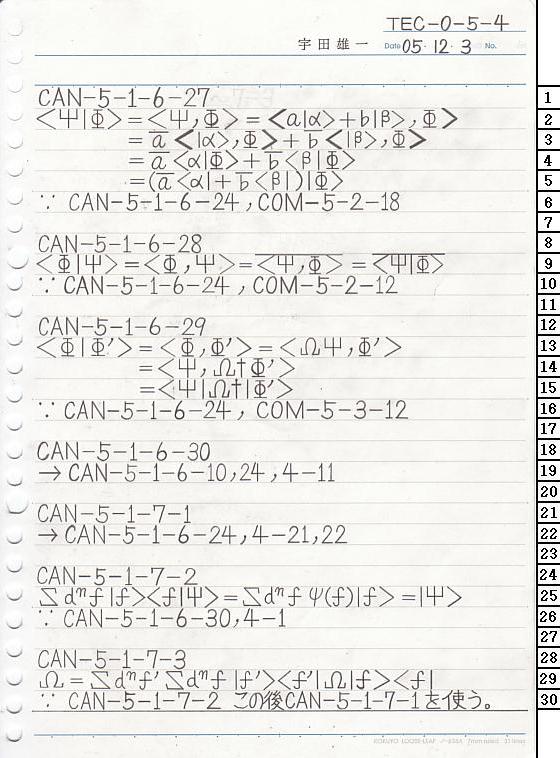 TEC-0-5-4
宇田雄一 Date 05・12・3 No.
CAN-5-1-6-27
<Ψ|Φ>=<Ψ,Φ>=<a|α>+b|β>,Φ>
=a̅<|α>,Φ>+b̅<|β>,Φ>
=a̅<α|Φ>+b̅<β|Φ>
=(a̅<α|+b̅<β|)|Φ>
∵ CAN-5-1-6-24,COM-5-2-18
CAN-5-1-6-28
<Φ|Ψ>=<Φ,Ψ>=<Ψ,Φ>=<Ψ|Φ>
∵ CAN-5-1-6-24,COM-5-2-12
CAN-5-1-6-29
<Φ|Φ'>=<Φ,Φ'>=<ΩΨ,Φ'>
=<Ψ,Ω†Φ'>
=<Ψ|Ω†|Φ'>
∵ CAN-5-1-6-24, COM-5-3-12
CAN-5-1-6-30
→ CAN-5-1-6-10,24,4-11
CAN-5-1-7-1
→ CAN-5-1-6-24,4-21,22
CAN-5-1-7-2
∑dⁿf|f><f|Ψ>=∑dⁿf Ψ(f)|f>=|Ψ>
∵ CAN-5-1-6-30,4-1
CAN-5-1-7-3
Ω=∑dⁿf'∑dⁿf|f'><f'|Ω|f><f|
∵ CAN-5-1-7-2 この後CAN-5-1-7-1を使う。
KOKUYO LOOSE-LEAF
1
2
3
4
5
6
7
8
9
10
11
12
13
14
15
16
17
18
19
20
21
22
23
24
25
26
27
28
29
30